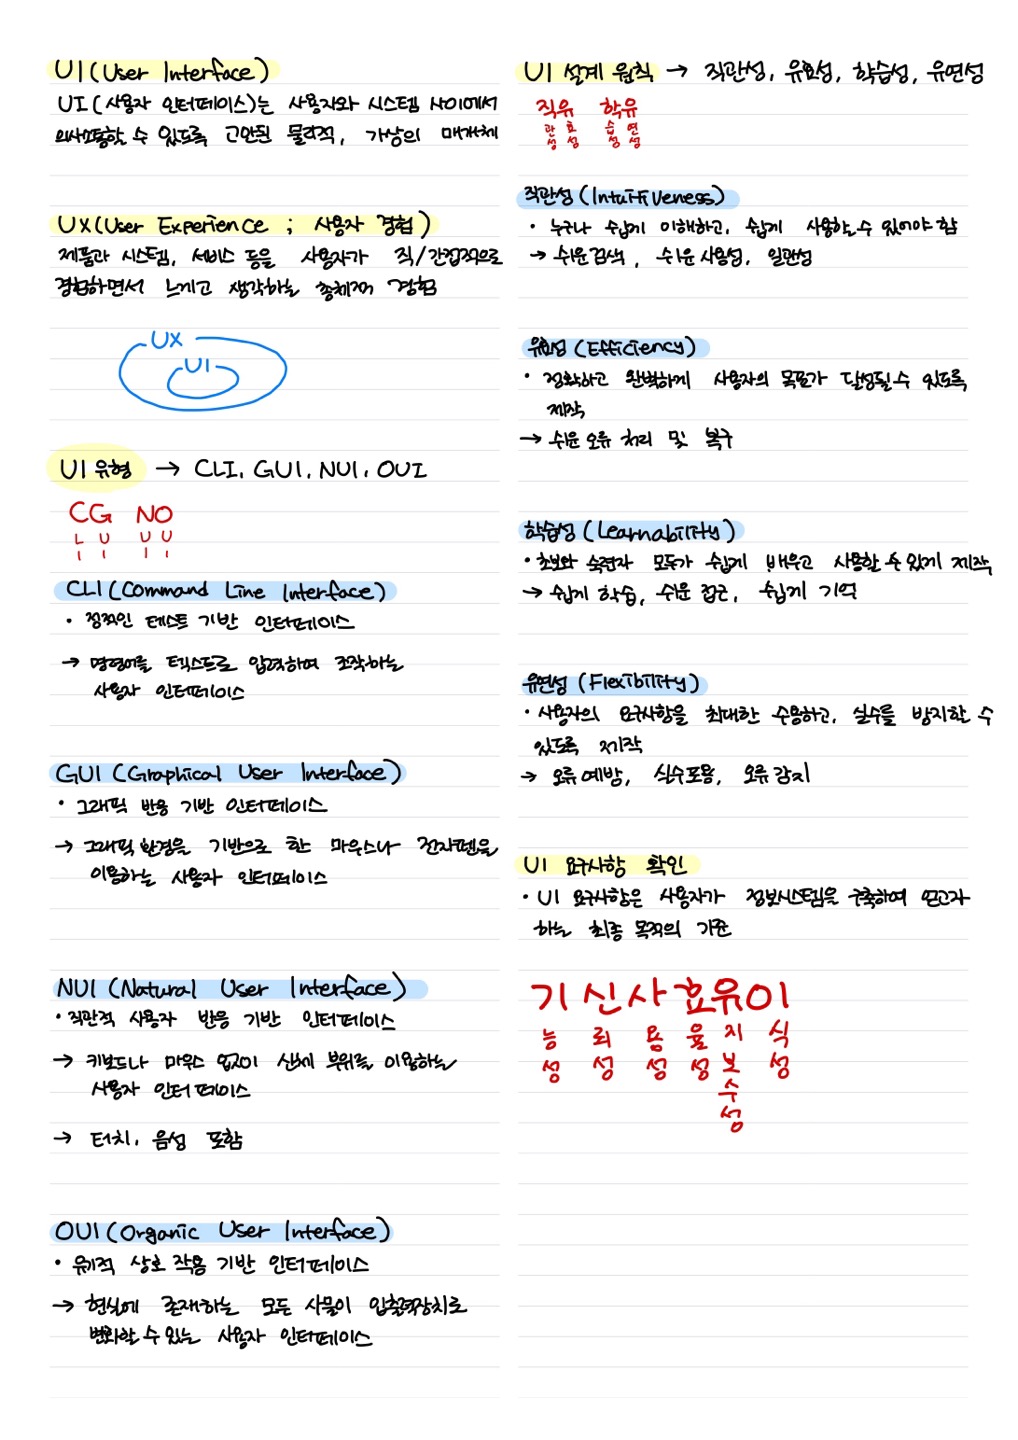 UI (User Interface)
UI (사용자 인터페이스)는 사용자와 시스템 사이에서
의사소통할 수 있도록 고안된 물리적, 가상의 매개체
UX (User Experience ; 사용자 경험)
제품과 시스템, 서비스 등을 사용자가 직/간접적으로
경험하면서 느끼고 생각하는 총체적 경험
UX
UI
UI 유형 → CLI, GUI, NUI, OUI
CG NO
L U U U
I I I I
CLI (Command Line Interface)
• 정적인 텍스트 기반 인터페이스
→ 명령어를 텍스트로 입력하여 조작하는
사용자 인터페이스
GUI (Graphical User Interface)
• 그래픽 반응 기반 인터페이스
→ 그래픽 환경을 기반으로 한 마우스나 전자펜을
이용하는 사용자 인터페이스
NUI (Natural User Interface)
• 직관적 사용자 반응 기반 인터페이스
→ 키보드나 마우스 없이 신체 부위를 이용하는
사용자 인터페이스
→ 터치, 음성 포함
OUI (Organic User Interface)
• 유기적 상호 작용 기반 인터페이스
→ 현실에 존재하는 모든 사물이 입출력장치로
변화할 수 있는 사용자 인터페이스
UI 설계 원칙 → 직관성, 유효성, 학습성, 유연성
직유 학유
관효 습연
성성 성성
직관성 (Intuitiveness)
• 누구나 쉽게 이해하고, 쉽게 사용할 수 있어야 함
→ 쉬운 검색, 쉬운 사용성, 일관성
유효성 (Efficiency)
• 정확하고 완벽하게 사용자의 목표가 달성될 수 있도록
제작
→ 쉬운 오류 처리 및 복구
학습성 (Learnability)
• 초보와 숙련자 모두가 쉽게 배우고 사용할 수 있게 제작
→ 쉽게 학습, 쉬운 접근, 쉽게 기억
유연성 (Flexibility)
• 사용자의 요구사항을 최대한 수용하고, 실수를 방지할 수
있도록 제작
→ 오류 예방, 실수 포용, 오류 감지
UI 요구사항 확인
• UI 요구사항은 사용자가 정보시스템을 구축하여 얻고자
하는 최종 목적의 기준
기 신 사 효 유 이
능 뢰 용 율 지 식
성 성 성 성 보 성
수
성